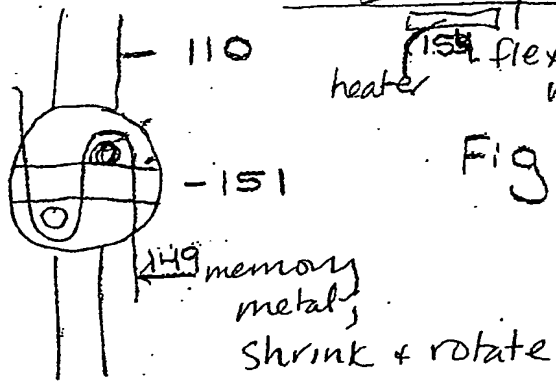 110
flex
heater
Fig
-151
149 memory
metal,
shrink + rotate